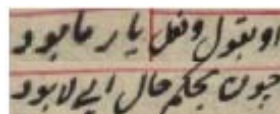 او بقول و فعل یار ما بود
چون بحکم حال آیی لا بود